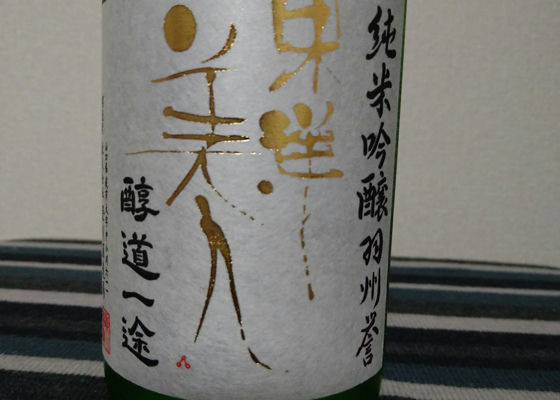 純米吟醸羽州誉
東洋
美人
醇道一途